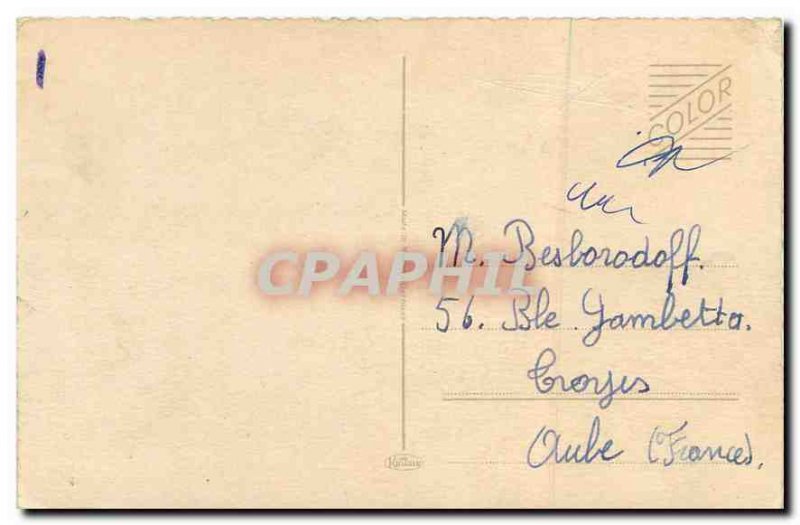 COLOR
M. Besborodoff.
56. Ble Gambetta.
Troyes
Aube (France).
CPAPHIL